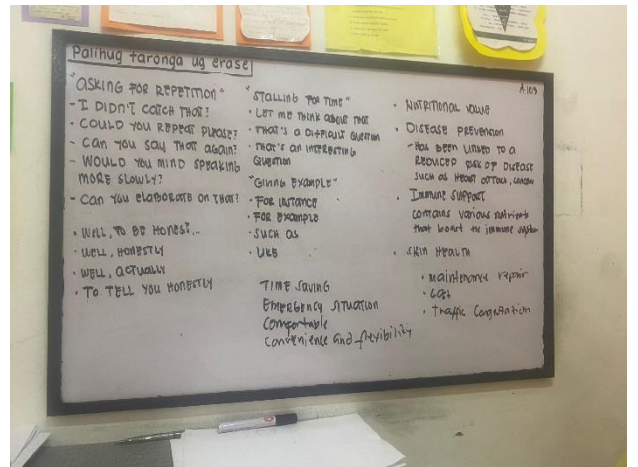 Palihug taronga ug erase
A-103
"ASKING FOR REPETITION"
- I DIDN'T CATCH THAT?
- COULD YOU REPEAT PLEASE?
- CAN YOU SAY THAT AGAIN?
- WOULD YOU MIND SPEAKING
MORE SLOWLY?
- CAN YOU ELABORATE ON THAT?
• WELL, TO BE HONEST...
• WELL, HONESTLY
• WELL, ACTUALLY
• TO TELL YOU HONESTLY
"STALLING FOR TIME"
• LET ME THINK ABOUT THAT
• THAT'S A DIFFICULT QUESTION
• THAT'S AN INTERESTING
QUESTION
"GIVING EXAMPLE"
• FOR INSTANCE
• FOR EXAMPLE
• SUCH AS
• LIKE
TIME SAVING
EMERGENCY SITUATION
Comfortable
Convenience and flexibility
• NUTRITIONAL VALUE
• DISEASE PREVENTION
- HAS BEEN LINKED TO A
REDUCED RISK OF DISEASE
SUCH AS HEART ATTACK, CANCER
• IMMUNE SUPPORT
contains various nutrients
that boost the immune system
• SKIN HEALTH
• maintenance repair
• Cost
• Traffic Congestion